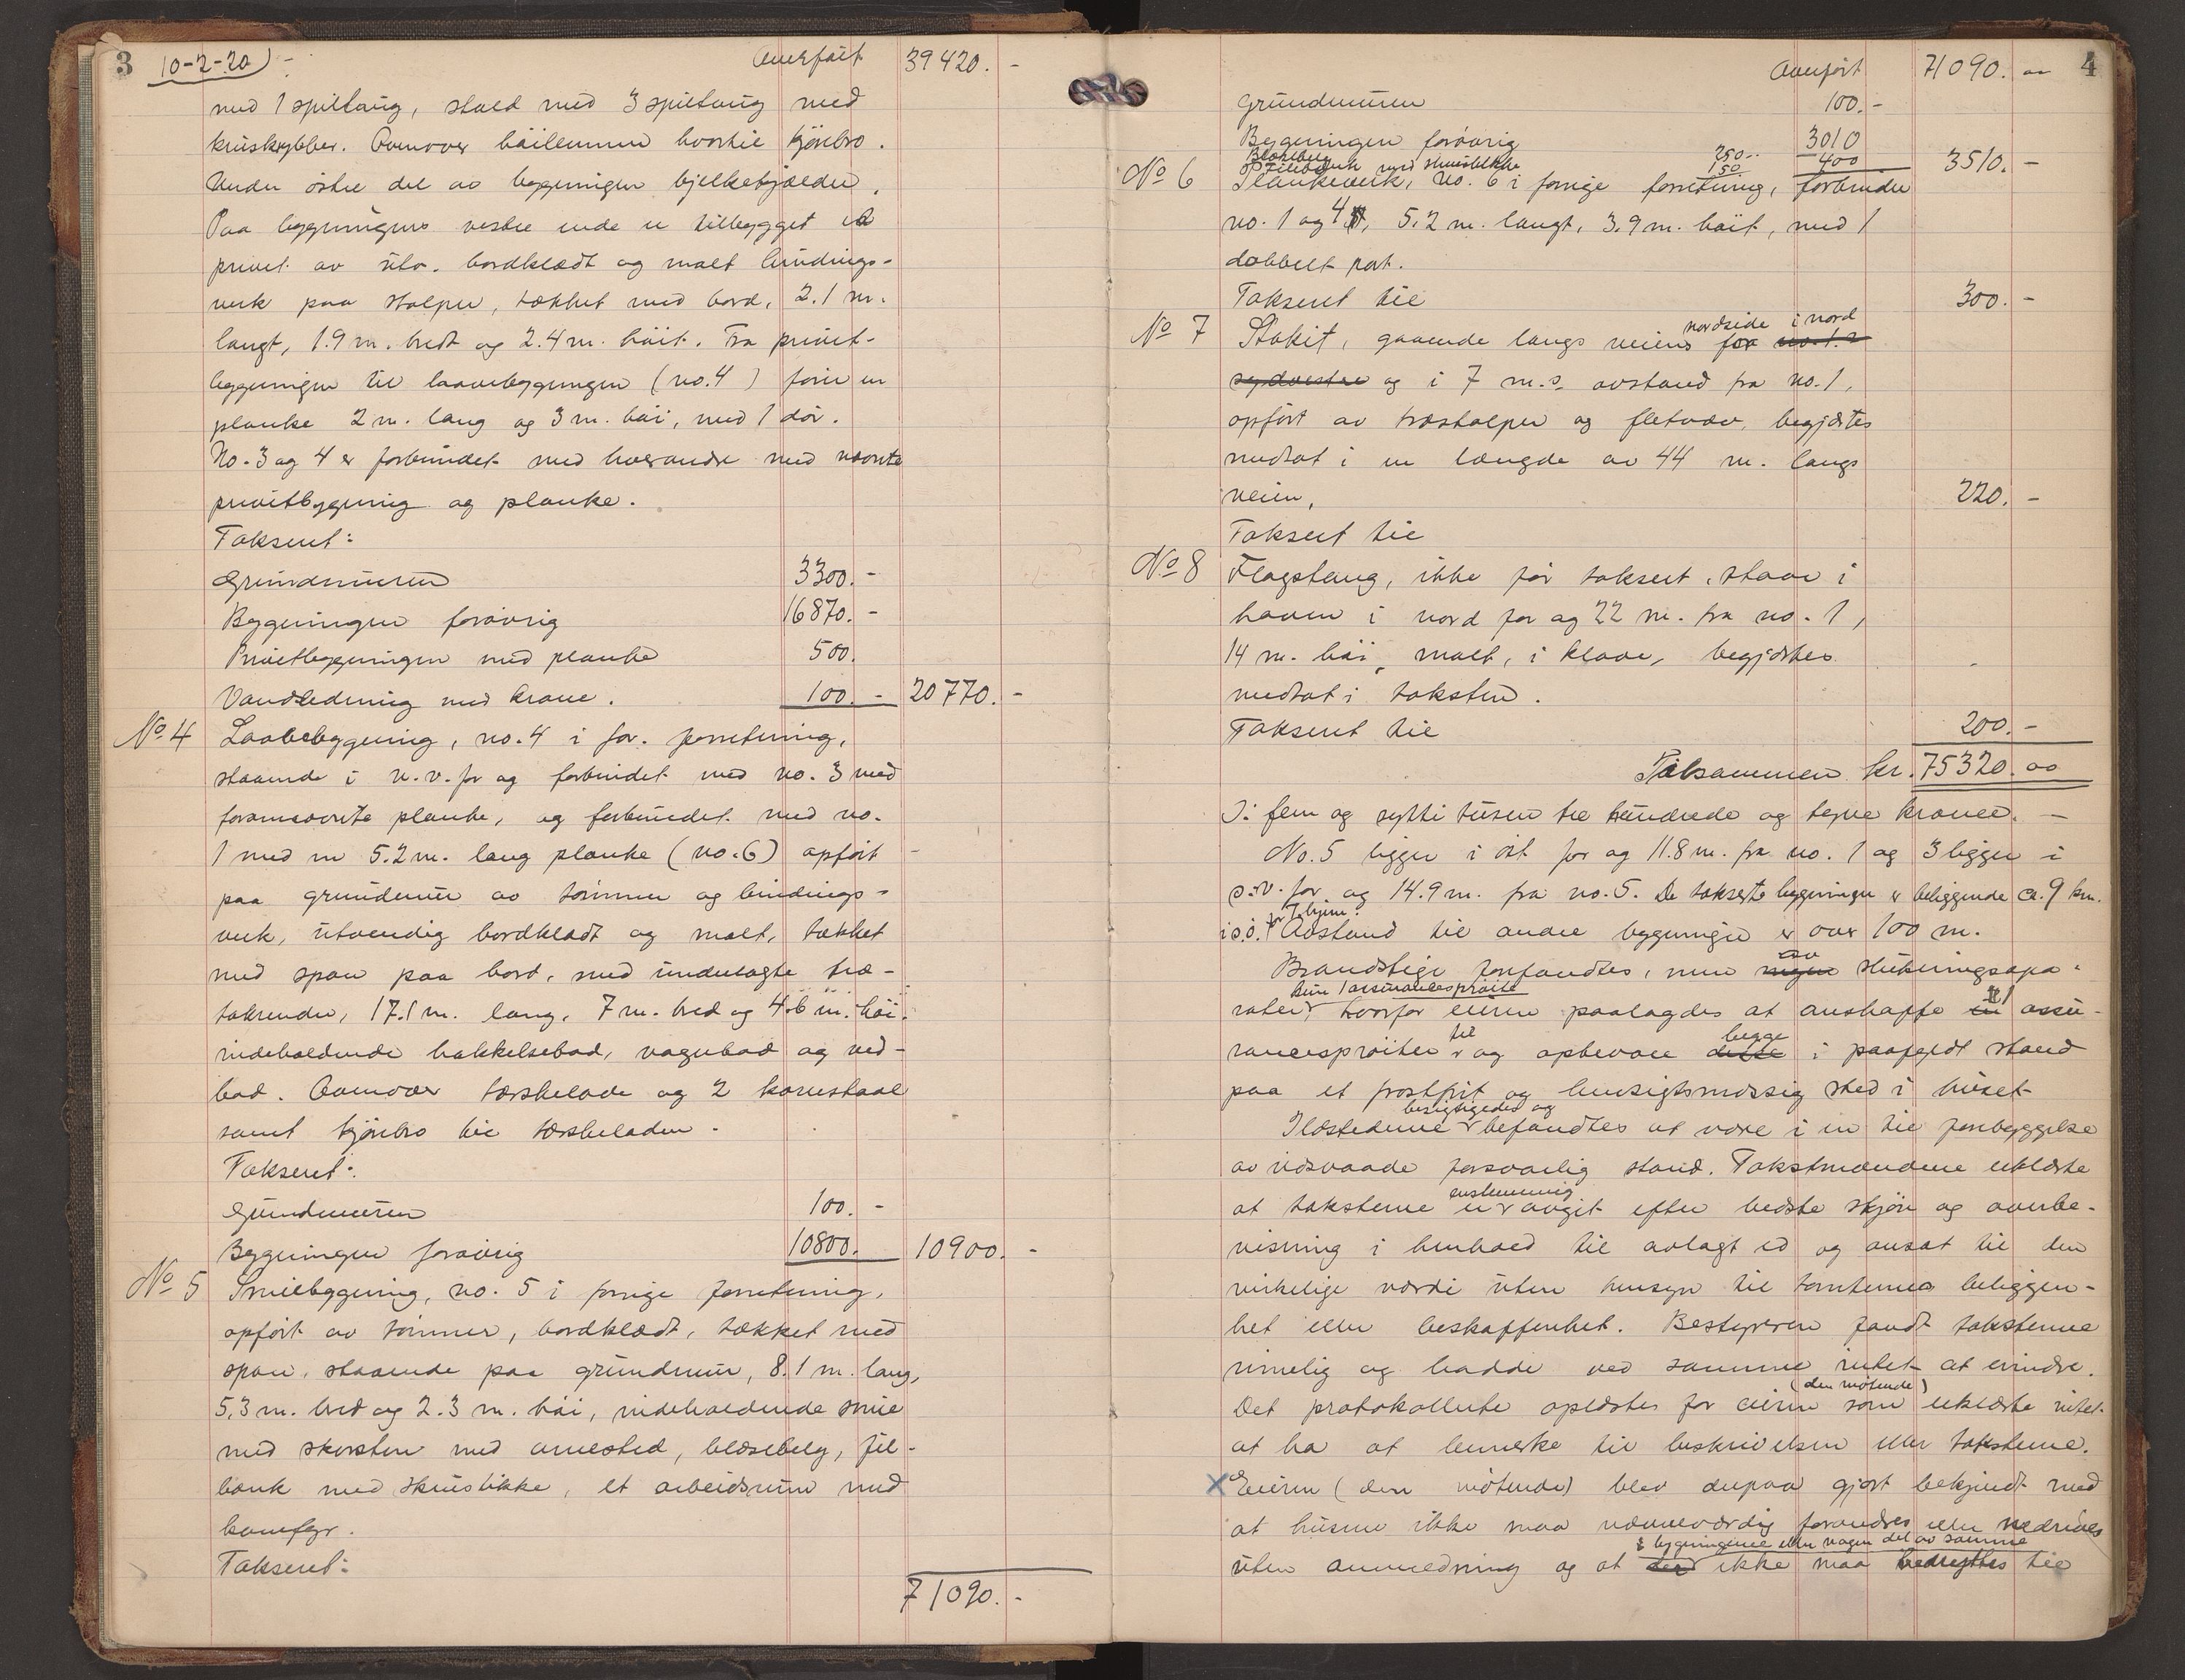 3 10-2-20) - Overført 39420. -
med 1 spiltaug, stald med 3 spiltaug med
kruskrybber. Ovenover höilemmer hvortil kjörebro.
Under östre del av bygningen bjelkekjælder.
Paa bygningens vestre ende er tilbygget et
privet av utv. bordklædt og malt bindings-
verk paa stolper, tækket med bord, 2.1 m.
langt, 1.9 m. bredt og 2.4 m. höit. Fra privet-
bygningen til laavebygningen (no. 4) fører en
planke 2 m. lang og 3 m. höi, med 1 dör.
No. 3 og 4 er forbundet med hverandre med nævnte
privetbygning og planke.
Taksert:
Grundmuren 3300. -
Bygningen forövrig 16870. -
Privetbygningen med planke 500.
Vandledning med krane. 100. - 20770. -
No. 4 Laavebygning, no. 4 i for. forretning,
staaende i n.v. for og forbundet med no. 3 med
forannævnte planke, og forbundet med no.
1 med en 5.2 m. lang planke (no. 6) opfört
paa grundmur av tömmer og bindings-
verk, utvendig bordklædt og malt, tækket
med spon paa bord, med underlagte træ-
takrender, 17.1 m. lang, 7 m. bred og 4.6 m. höi.
indeholdende hakkelsebod, vognbod og ved-
bod. Ovenover tærskelade og 2 kornstaal
samt kjörebro til tærskeladen.
Taksert:
Grundmuren 100. -
Bygningen forövrig 10800. 10900. -
No. 5 Smiebygning, no. 5 i forrige forretning,
opfört av tömmer, bordklædt, tækket med
spon, staaende paa grundmur, 8.1 m. lang,
5.3 m. bred og 2.3 m. höi, indeholdende smie
med skorsten med arnested, blæsebelg, fil-
bænk med skrustikke, et arbeidsrum med
komfyr.
Taksert:
71090. -
Overført 71090. oo 4
Grundmuren 100. -
Bygningen forövrig 3010
Blæsebelg 250. -
og Filebænk med skrustikke 150 400 3510. -
No. 6 Plankeverk, no. 6 i forrige forretning, forbinder
no. 1 og 4, 5.2 m. langt, 3.9 m. höit, med 1
dobbelt port.
Taksert til 300. -
nordside i nord
No. 7 Stakit, gaaende langs veiens for no. 1.s
sydvestre og i 7 m.s avstand fra no. 1,
opfört av træstolper og fletværk, begjærtes
medtat i en længde av 44 m. langs
veien, 220. -
Taksert til
No. 8 Flagstang, ikke för taksert, staar i
haven i nord for og 22 m. fra no. 1,
14 m. höi, malt, i klave, begjærtes
medtat i taksten.
Taksert til 200. -
Tilsammen kr. 75320. oo
D: fem og sytti tusen tre hundrede og tyve kroner. -
No. 5 ligger i öst for og 11.8 m. fra no. 1 og 3 ligger i
s.v. for og 14.9 m. fra no. 5. De takserte bygninger er beliggende ca. 9 km.
for
i s.ö. Avstand til andre bygninger er over 100 m.
Brandstige forfandtes, men slukningsapa-
kun 1 assurancesprøite
rater, hvorfor eieren paalagdes at anskaffe 1 assu-
til begge
rancesprøite og opbevare disse i paafyldt stand
paa et frostfrit og hensigtsmæssig sted i huset
besigtigedes og
Ildstederne befandtes at være i en til forebyggelse
av ildsvaade forsvarlig stand. Takstmændene erklærte
enstemmig
at taksterne er avgit efter bedste skjön og overbe-
visning i henhold til avlagt ed og ansat til den
virkelige værdi uten hensyn til tomternes beliggen-
het eller beskaffenhet. Bestyreren fandt taksterne
rimelig og hadde ved samme intet at erindre.
(den mötende)
Det protokollerte oplæstes for eieren som erklærte intet
at ha at bemerke til beskrivelsen eller taksterne.
x Eieren (den mötende) blev derpaa gjort bekjendt med
at husene ikke maa nævneværdig forandres eller nedrives
bygningerne eller nogen del av samme
uten anmeldning og at ikke maa benyttes til